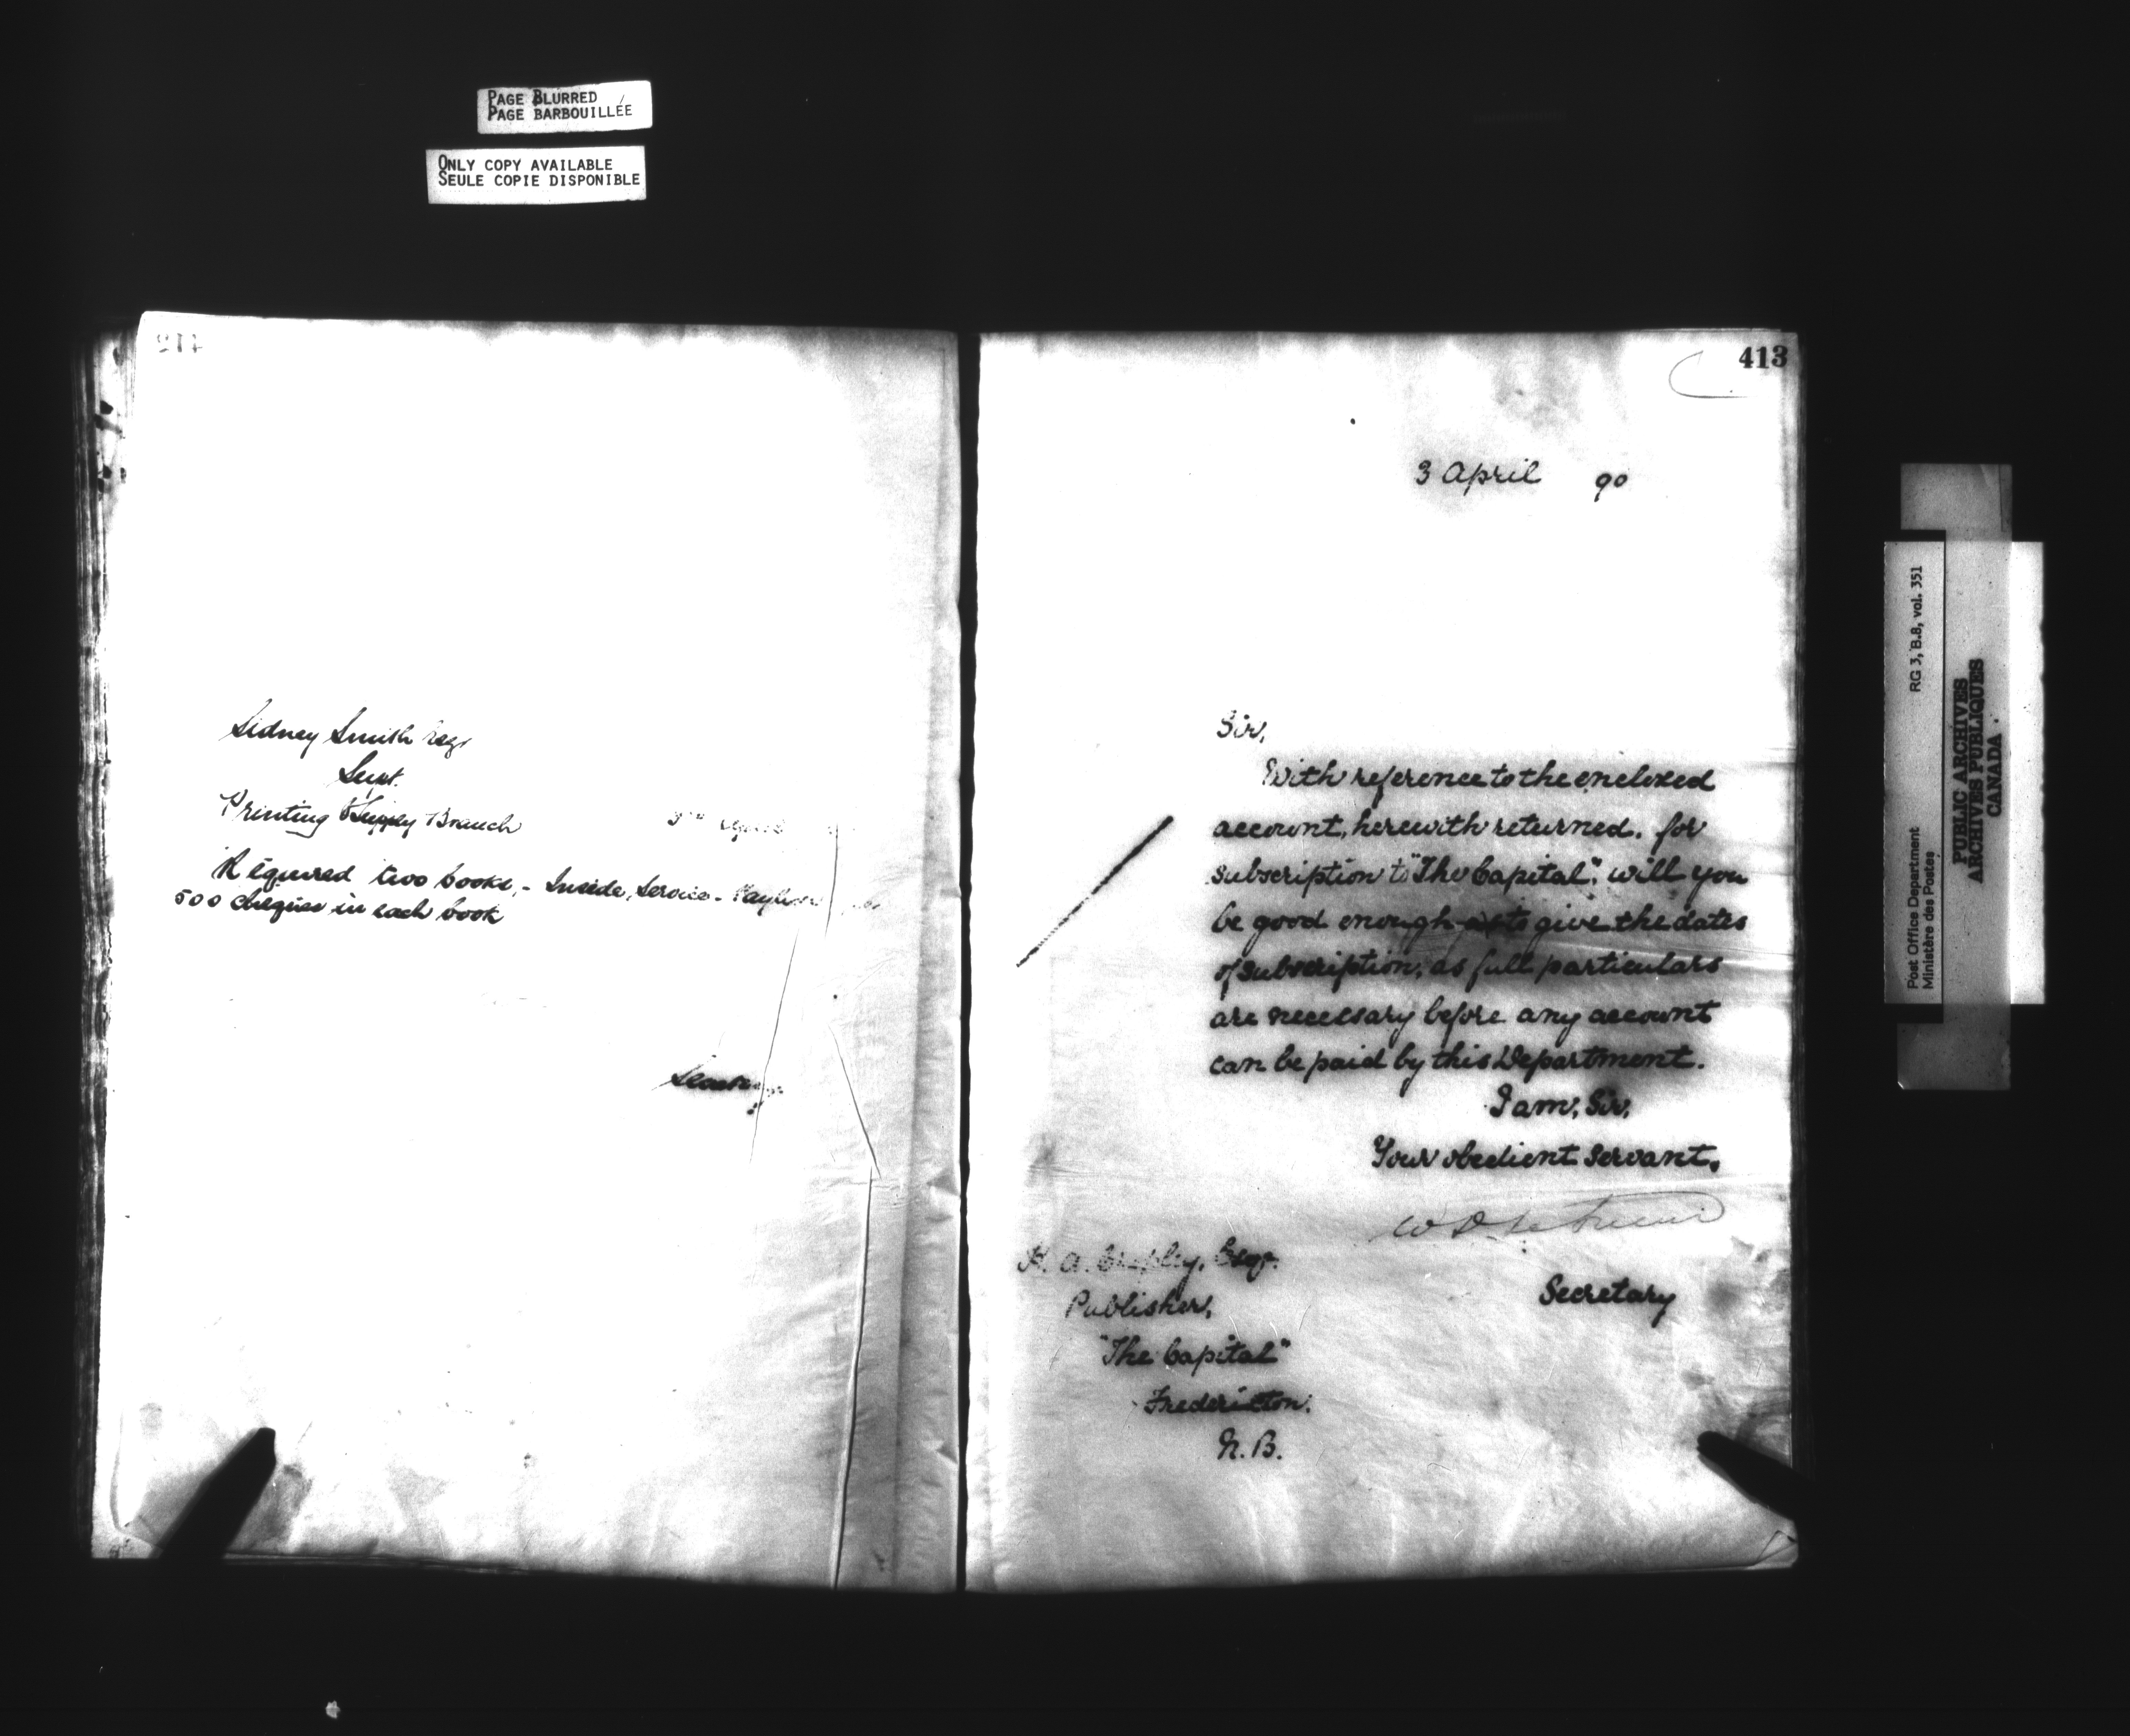 PAGE BLURRED
PAGE BARBOUILLÉE
ONLY COPY AVAILABLE
SEULE COPIE DISPONIBLE
412
Sidney Smith Esqr
Supt.
Printing & Supply Branch
3rd April
Required two books, - Inside, Service -
500 cheques in each book
413
3 April 90
Sir,
With reference to the enclosed
account, herewith returned, for
subscription to "The Capital", will you
be good enough to give the dates
of subscription, as full particulars
are necessary before any account
can be paid by this Department.
I am, Sir,
Your obedient servant,
W D LeSueur
Secretary
H. A. Cropley, Esqr.
Publisher,
"The Capital"
Fredericton.
N. B.
Post Office Department RG 3, B.8, vol. 351
Ministère des Postes
PUBLIC ARCHIVES
ARCHIVES PUBLIQUES
CANADA